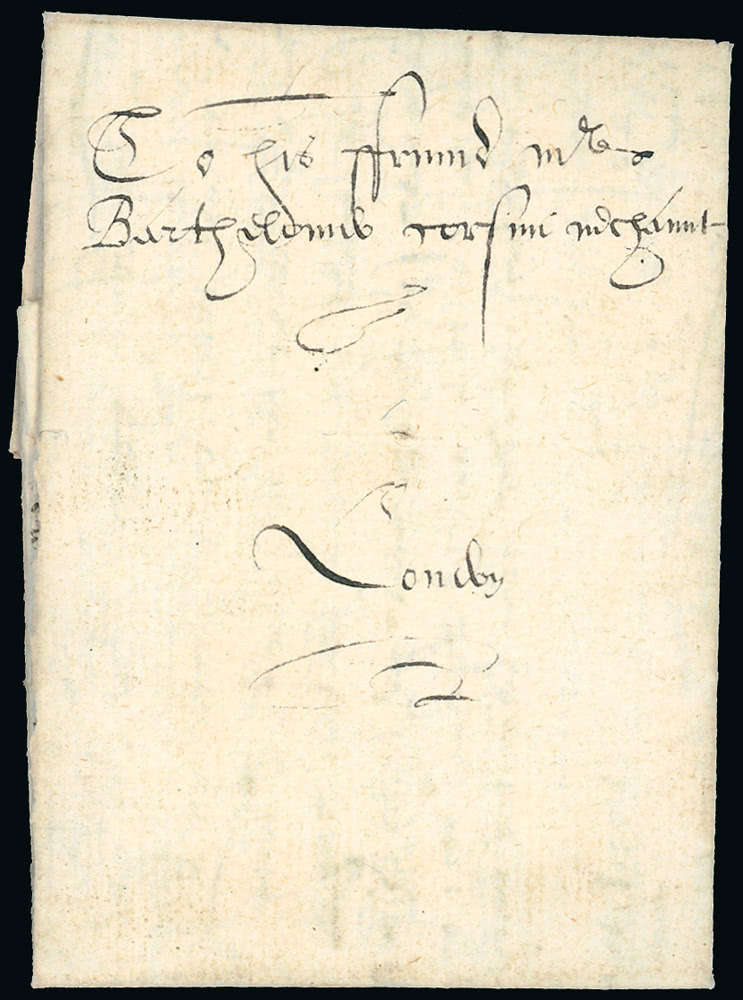 To his ffrennd mr
Barthelomew Corsini mchaunt
London